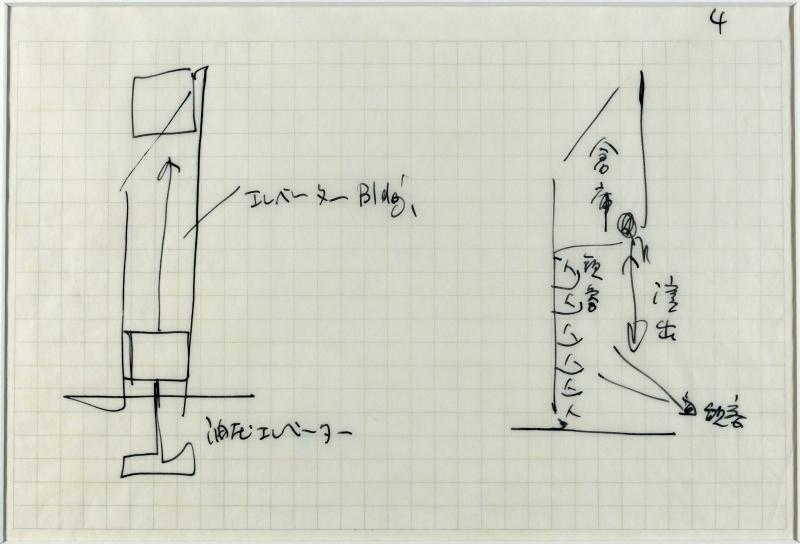 4
エレベーター Bldg.
油圧エレベーター
倉庫
演出
観客